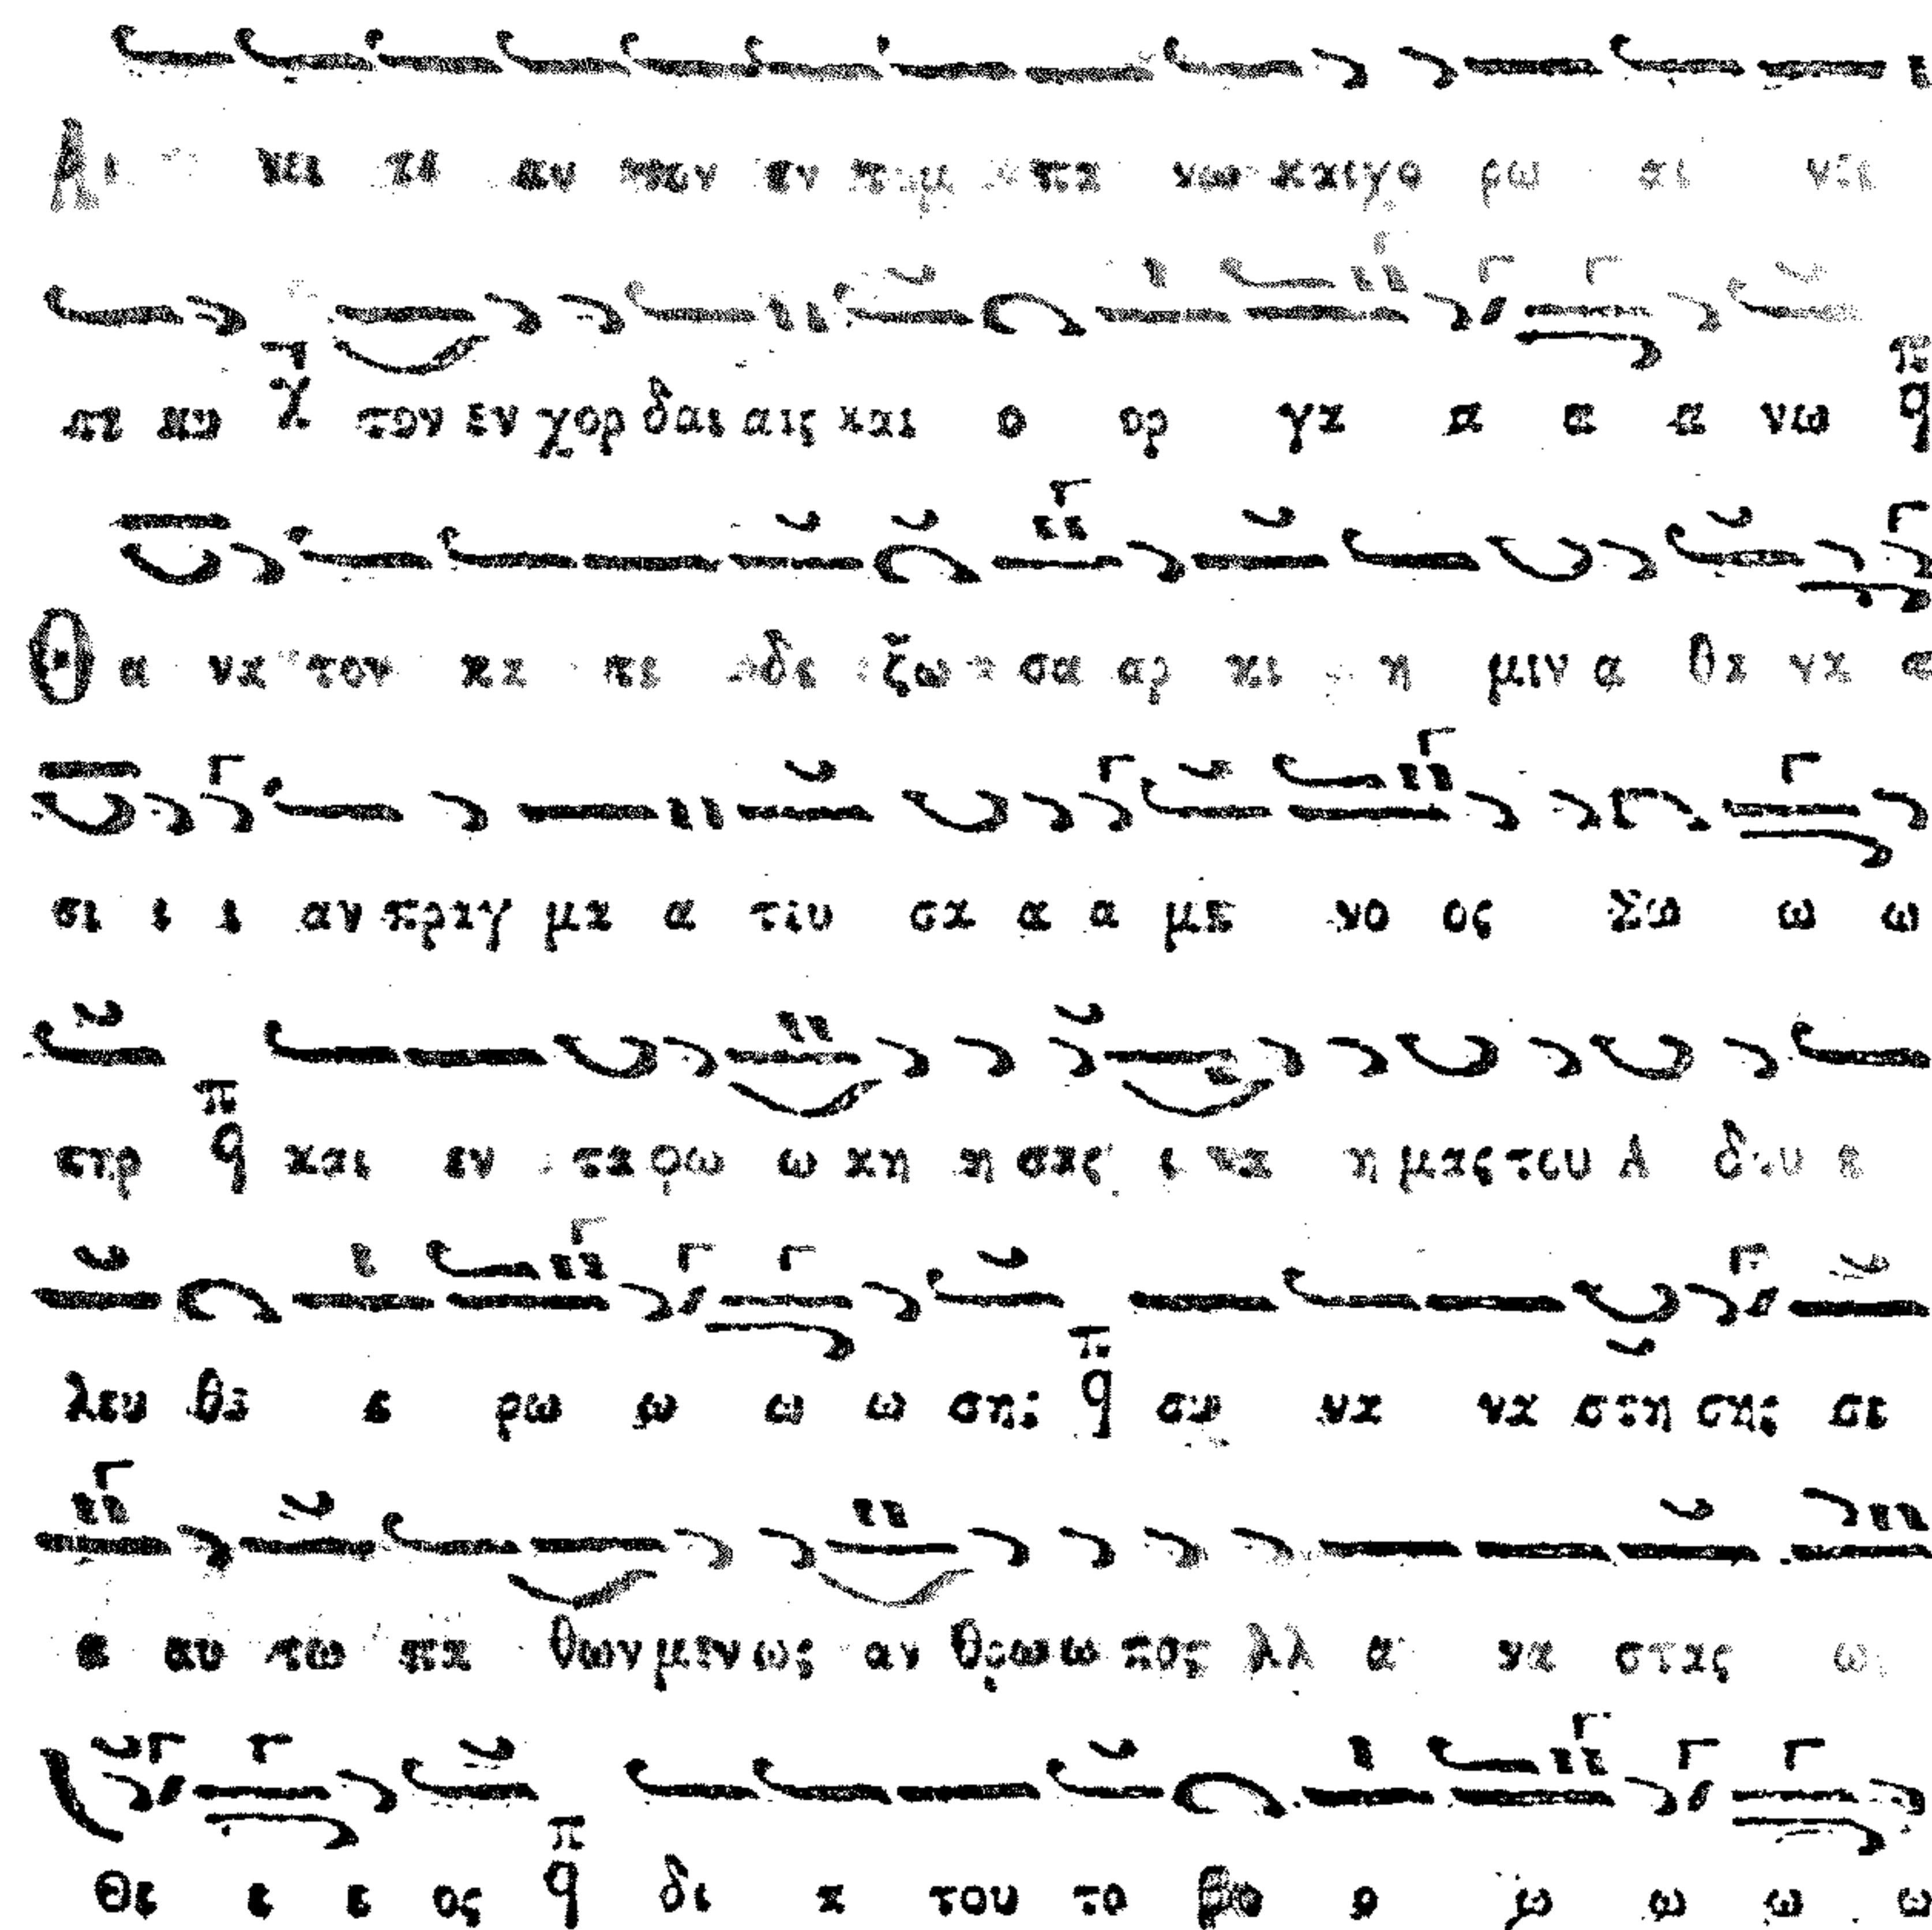 Αι νει τε αυ τον εν τυμ πα νω και χο ρω αι νει
τε αυ τον εν χορ δαι αις και ο ορ γα α α α νω π q
Θ α να τον κα τε δε ξω σα αρ κι η μιν α θα να α
σι ι ι αν πραγ μα α τευ σα α α με νο ος Σω ω ω
τηρ π q και εν τα φω ω κη η σας ι να η μας του Α δου ε
λευ θε ε ρω ω ω ω σης π q συ να να στη σης σε
ε αυ τω πα θων μεν ως αν θρω ω πος αλλ α να στας ως
Θε ε ε ος π q δι α του το βο ο ω ω ω ω